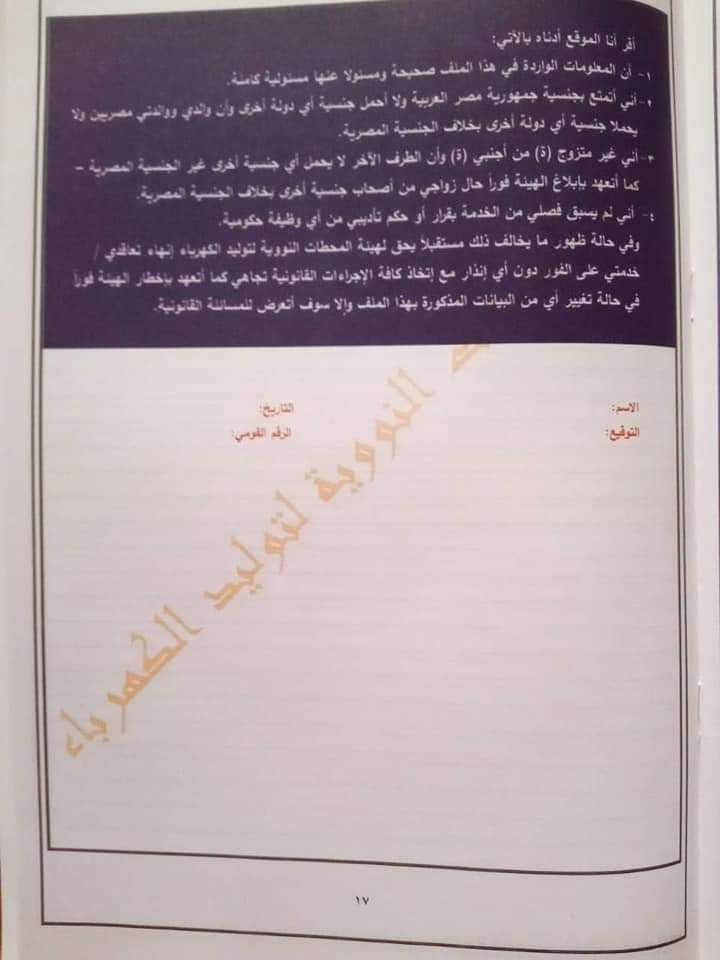 أقر أنا الموقع أدناه بالآتي:
١- أن المعلومات الواردة في هذا الملف صحيحة ومسئولا عنها مسئولية كاملة.
٢- أني أتمتع بجنسية جمهورية مصر العربية ولا أحمل جنسية أي دولة أخرى وأن والدي ووالدتي مصريين ولا
يحملا جنسية أي دولة أخرى بخلاف الجنسية المصرية.
٣- أني غير متزوج (ة) من أجنبي (ة) وأن الطرف الآخر لا يحمل أي جنسية أخرى غير الجنسية المصرية –
كما أتعهد بإبلاغ الهيئة فوراً حال زواجي من أصحاب جنسية أخرى بخلاف الجنسية المصرية.
٤- أني لم يسبق فصلي من الخدمة بقرار أو حكم تأديبي من أي وظيفة حكومية.
وفي حالة ظهور ما يخالف ذلك مستقبلاً يحق لهيئة المحطات النووية لتوليد الكهرباء إنهاء تعاقدي /
خدمتي على الفور دون أي إنذار مع إتخاذ كافة الإجراءات القانونية تجاهي كما أتعهد بإخطار الهيئة فوراً
في حالة تغيير أي من البيانات المذكورة بهذا الملف وإلا سوف أتعرض للمسائلة القانونية.
الاسم: التاريخ:
التوقيع: الرقم القومي:
النووية لتوليد الكهرباء
١٧